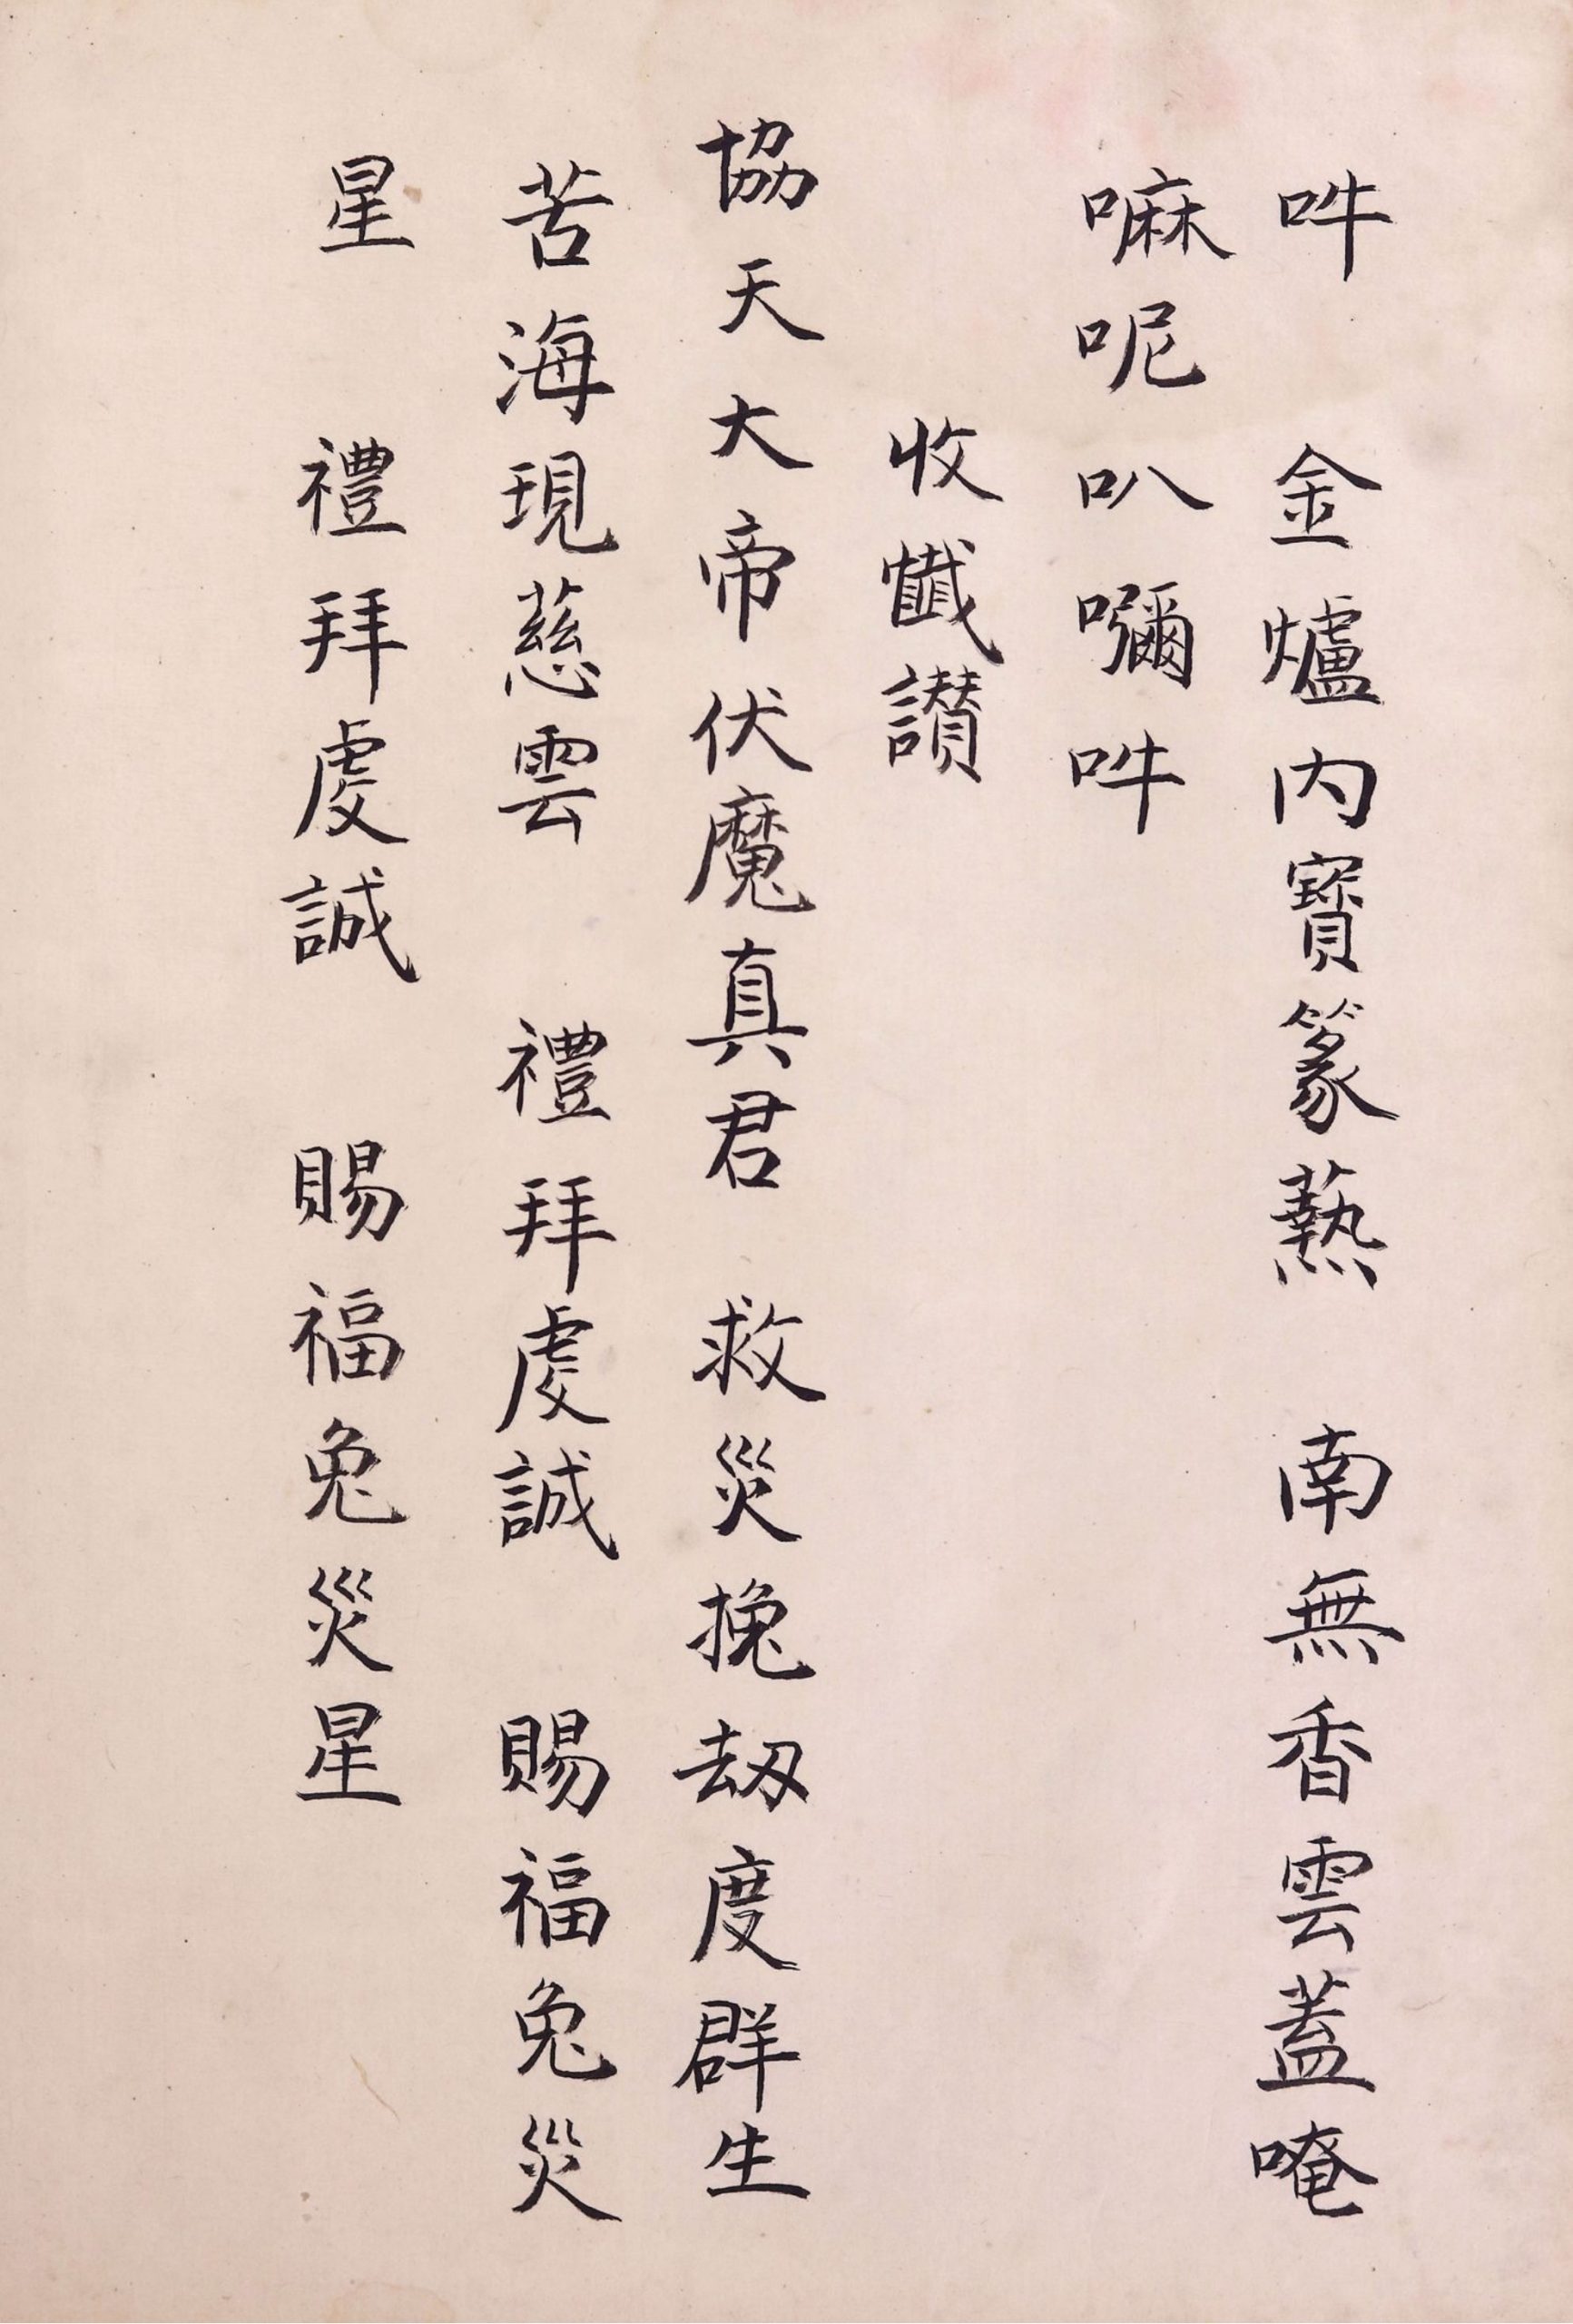 吽　金爐内寶篆爇　南無香雲蓋唵
嘛呢叭嚩吽
收懺讃
協天大帝伏魔真君　救災挽劫度群生
苦海現慈雲　禮拜虔誠　賜福免災
星　禮拜虔誠　賜福免災星